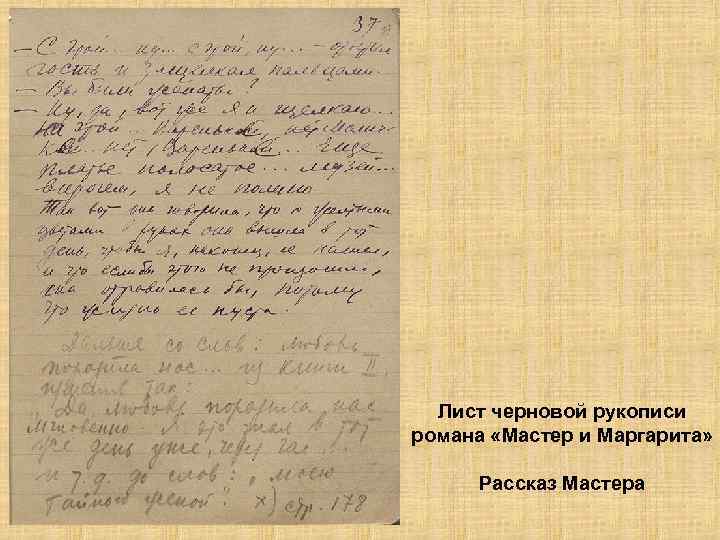 37
— С этой... ну... с этой, ну... — ответил
гость и защелкал пальцами.
— Вы были женаты?
— Ну, да, вот же я и щелкаю...
на этой... Вареньке, нет Манеч-
ке... нет, Вареньке... Еще
платье полосатое... музей...
впрочем, я не помню.
Так вот она говорила, что с желтыми
цветами в руках она вышла в тот
день, чтобы я, наконец, ее нашел,
и что если бы этого не произошло,
она отравилась бы, потому
что жизнь ее пуста.
Дальше со слов: любовь
поразила нас... из книги II
так:
"Да, любовь поразила нас
мгновенно. Я это знал в тот
же день уже, через час...
и т. д. до слов: "моею
тайной женой". х) стр. 178
Лист черновой рукописи
романа «Мастер и Маргарита»
Рассказ Мастера